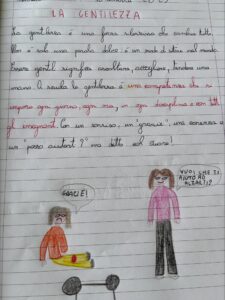 LA GENTILEZZA
La gentilezza è una forza silenziosa che cambia tutto.
Non è solo una parola dolce: è un modo di stare nel mondo.
Essere gentili significa ascoltare, accogliere, tendere una
mano. A scuola la gentilezza è una competenza che si
impara ogni giorno, ogni ora, in ogni disciplina e con tutti
gli insegnanti. Con un sorriso, un "grazie", una carezza o
un "posso aiutarti?"
GRACIE!
VUOI CHE TI
AIUTO AD
ALZARTI?